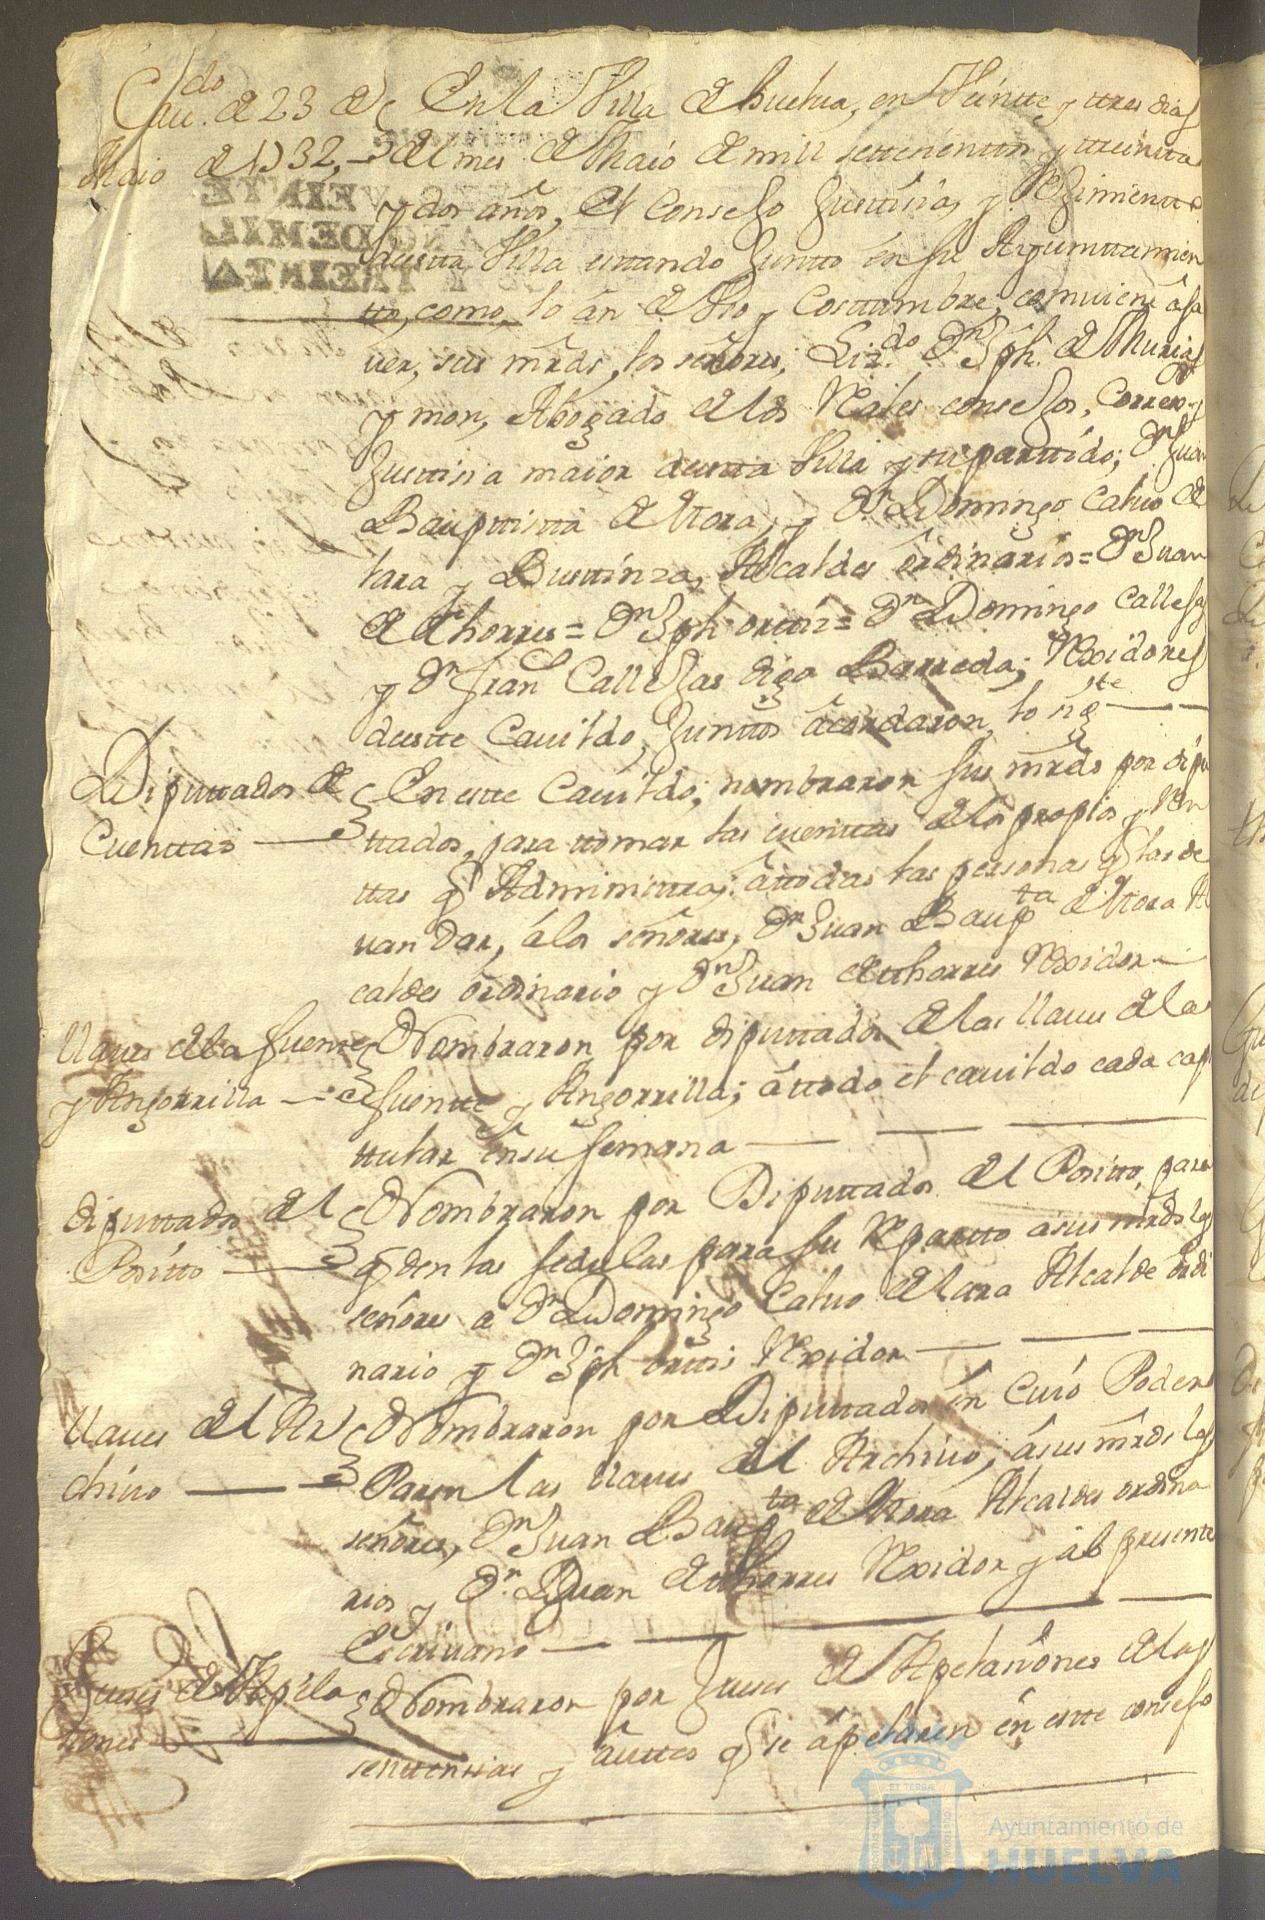 Cau.do de 23 de
Maio de 1732,
En la Villa de Huelua, en Veintte y ttres dias
del mes de Maio de mill settesenttos y ttreintta
y dos años, el Consejo Justtisia, y Reximientto
destta Villa esttando Juntto en su Ayunttamien
tto, como lo an de Vso y Costtumbre, combiene a sa
uer, sus mrds, los señores, Liz.do Dn Jph. de Murias
y mon, Abogado de los Rales consejos, Correxor
Justtisia maior destta Villa y su parttido; Dn Juan
Baupttistta de Mora, y Dn Domingo Caluo de
lara y Busttinza, Alcaldes ordinarios = Dn Juan
de tthorres = Dn Jph orttis = Dn Domingo Callejas
y Dn Fran.co Callejas digo Barreda; Rexidores
destte Cauildo, Junttos acordaron, lo sig.te
Diputtados de
Cuenttas
En estte Cauildo, nombraron sus mrds por dipu
ttados, para ttomar las cuenttas de los propios y Ren
ttas q Administtra, a ttodas las personas q las de
uan Dar, a los señores, Dn Juan Baup.ta de Mora Al
caldes ordinario y Dn Juan de tthorres Rexidor
llaues de la fuente
y Angorrilla
Nombraron por diputtados de las llaues de la
fuentte y Angorrilla; a ttodo el cauildo cada capi
ttular en su semana
diputtados del
Positto
Nombraron por Diputtados del Positto, para
q den las sedulas para su Repartto a sus mrds los
señores a Dn Domingo Caluo de lara Alcalde ordi
nario y Dn Jph orttis Rexidor
llaues del Ar
chiuo
Nombraron por Diputtados en Cuio Poder
Paren las llaues del Archiuo, a sus mrds los
señores, Dn Juan Baup.ta de Mora Alcaldes ordina
rios y Dn Juan de tthorres Rexidor y al presente
Escriuano
Jueses de Apela
siones
Nombraron por Jueses de Apelasiones de las
senttensias y auttos q se apelaren en estte consejo
VEINTE
Ayuntamiento de
HUELVA